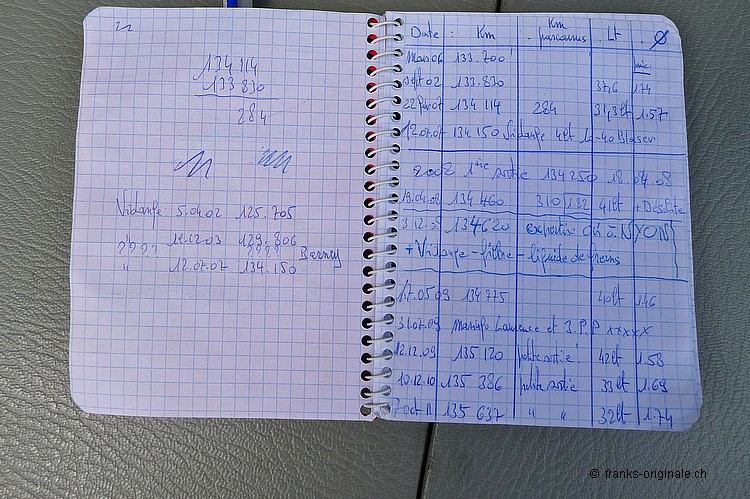 134 114
133 830
284
Vidange 5.04.02 125.705
12.12.03 129.806
???? ???? Barney
" 12.07.07 134.150
Date : Km Km parcourus Lt Ø
Mars 06 133.700
Sept 02 133.830 37,6 1.74
134 114 284 31,3 lt 1.57
12.07.07 134 150 Vidange 4 lt 10-40 Blaser
1ère sortie 134250 18.04.08
19.04.08 134 460 310/132 41 lt
134620 expertise à NYON
+ Vidange - filtre - liquide de freins
17.05.09 134 775 40 lt 1.46
31.07.09 Laurence et J.P.P xxxxx
12.12.09 135 120 petite sortie ! 42 lt 1.58
10.12.10 135 386 petite sortie 33 lt 1.69
135 637 " " 32 lt 1.74
© franks-originale.ch